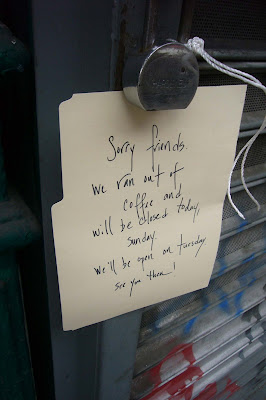 Sorry friends
we ran out of
coffee and
will be closed today,
sunday.
we'll be open on tuesday
see you then!